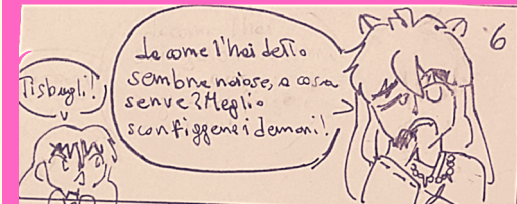 Ti sbagli!
da come l'hai detto
sembra noioso, a cosa
serve? Meglio
sconfiggere i demoni!
6